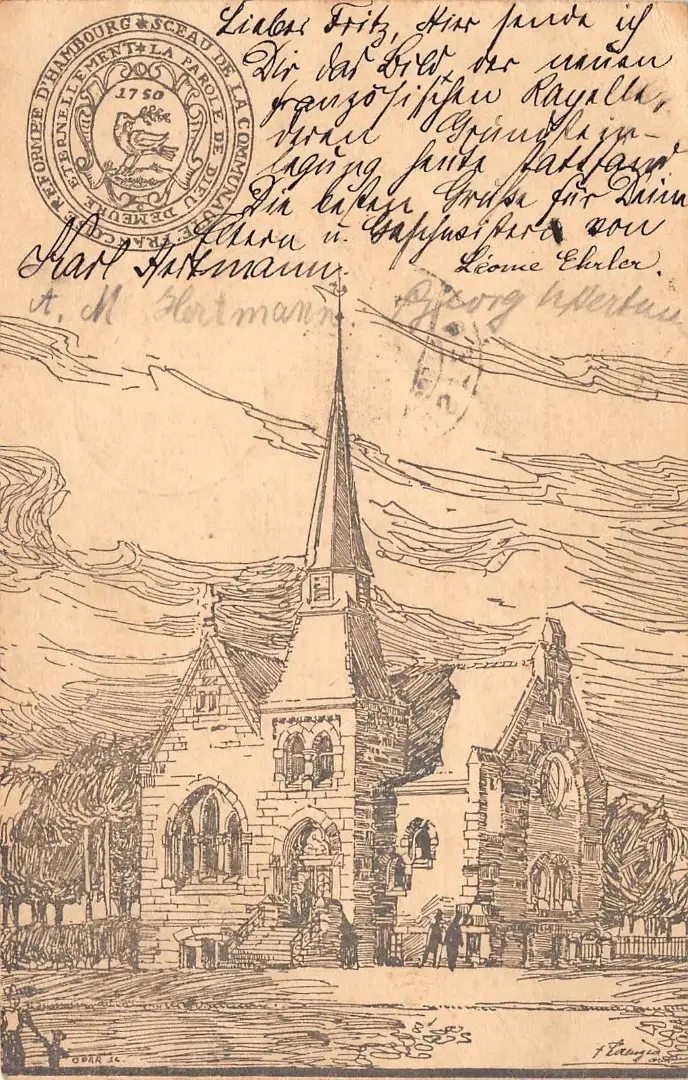 SCEAU DE LA COMMUNAUTÉ FRANÇOISE REFORMÉE D'HAMBOURG
LA PAROLE DE DIEU DEMEURE ETERNELLEMENT
1750
Lieber Fritz, Hier sende ich
Dir das Bild der neuen
französischen Kapelle,
deren Grundstein-
legung heute stattfand
Die besten Grüße für Deine
Eltern u. Geschwister von
Karl Hertmann. Léonie Ehrler.
A. M Hertmann Georg